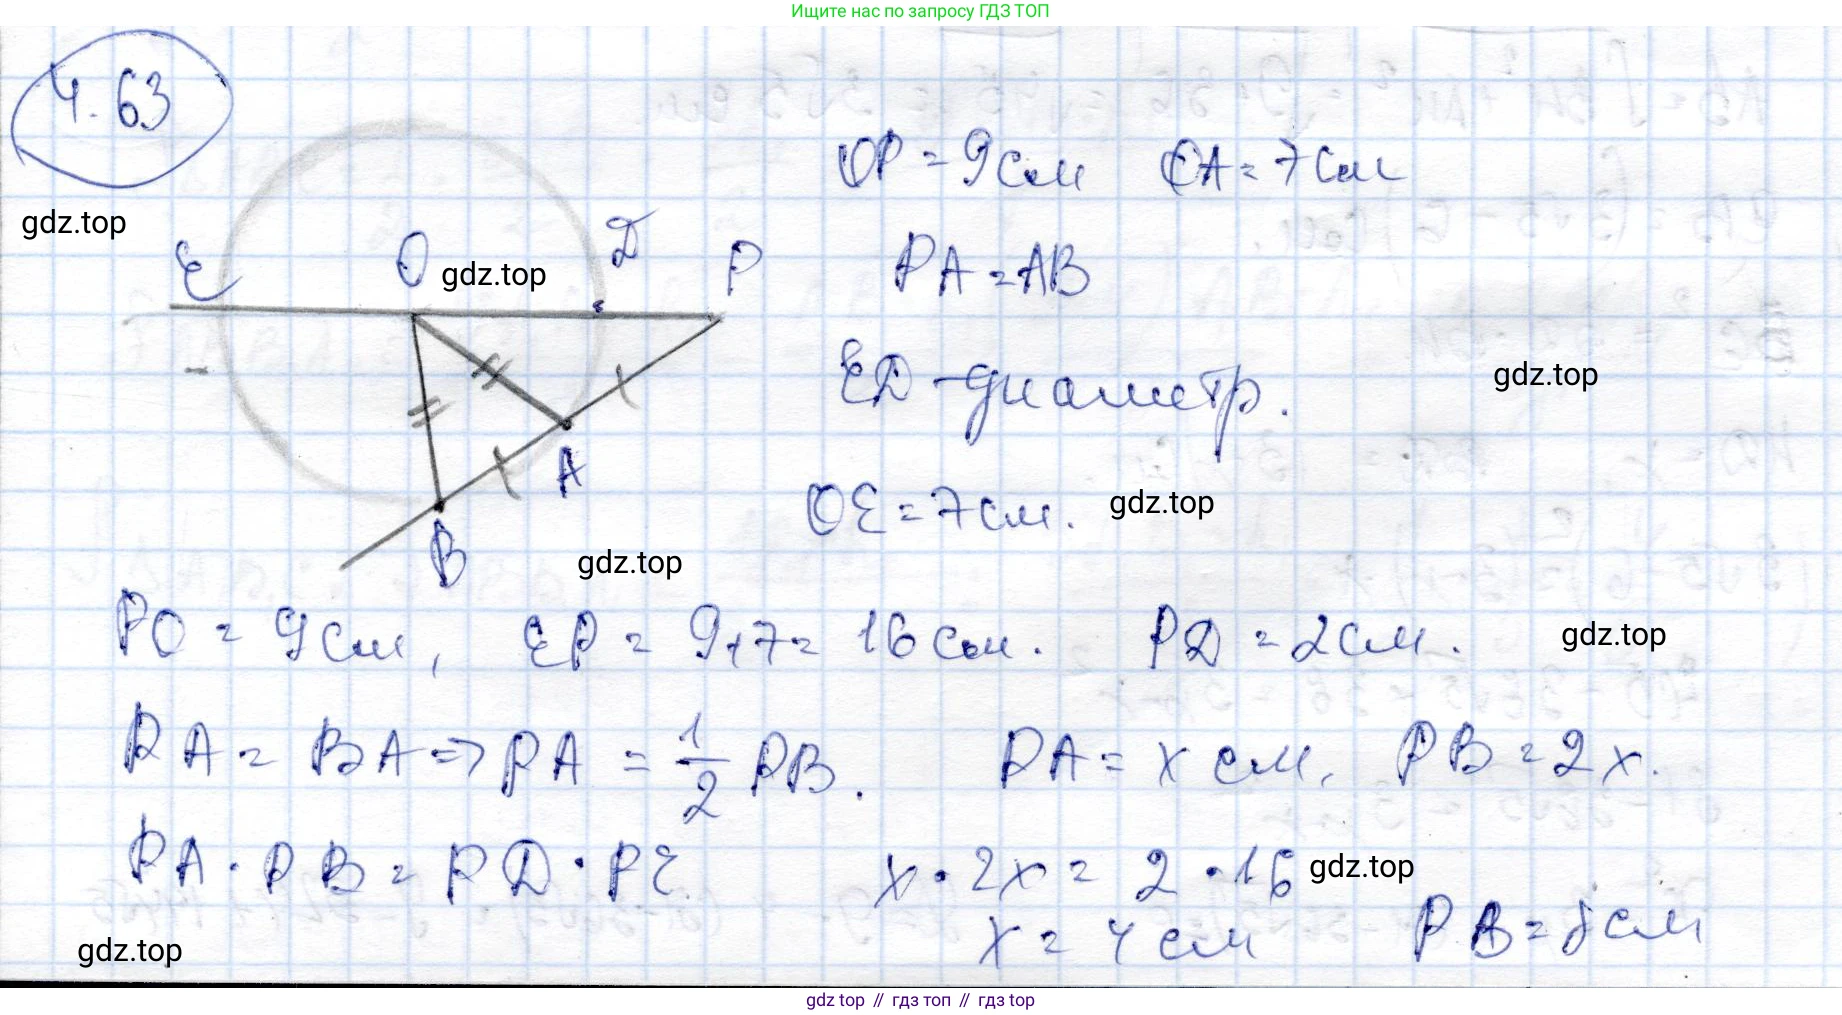 Ищите нас по запросу ГДЗ ТОП
4.63
OP = 9см OA = 7см
gdz.top
E O D P
gdz.top
PA = AB
ED - диаметр.
gdz.top
A
OE = 7см.
gdz.top
B
gdz.top
PO = 9см, EP = 9+7= 16см. PD = 2см.
gdz.top
PA = BA => PA = 1/2 PB. PA = x см, PB = 2x.
PA · PB = PD · PE. x · 2x = 2 · 16
gdz.top
x = 4 см PB = 8см
gdz.top
gdz top // гдз топ // gdz top